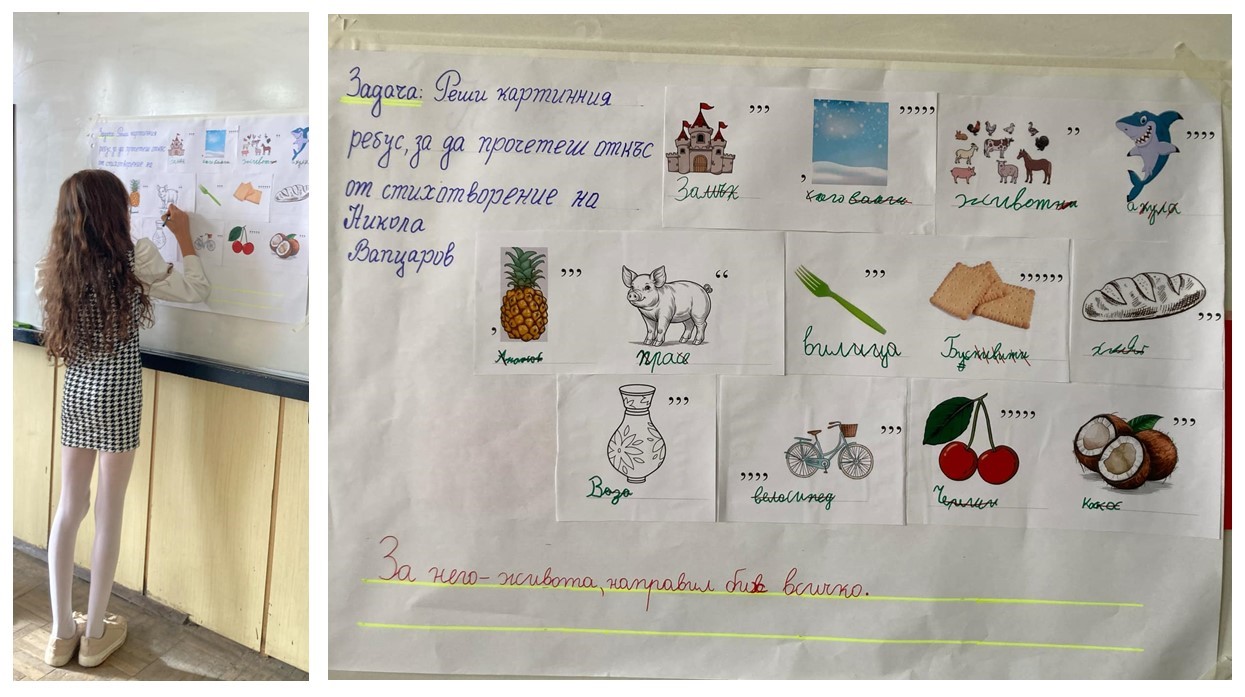 Задача: Реши картинния
ребус, за да прочетеш откъс
от стихотворение на
Никола
Вапцаров
Замък
животни
акула
Ананас
прасе
вилица
Бисквити
хляб
Ваза
велосипед
Череши
Кокос
За него - живота, направил бих всичко.